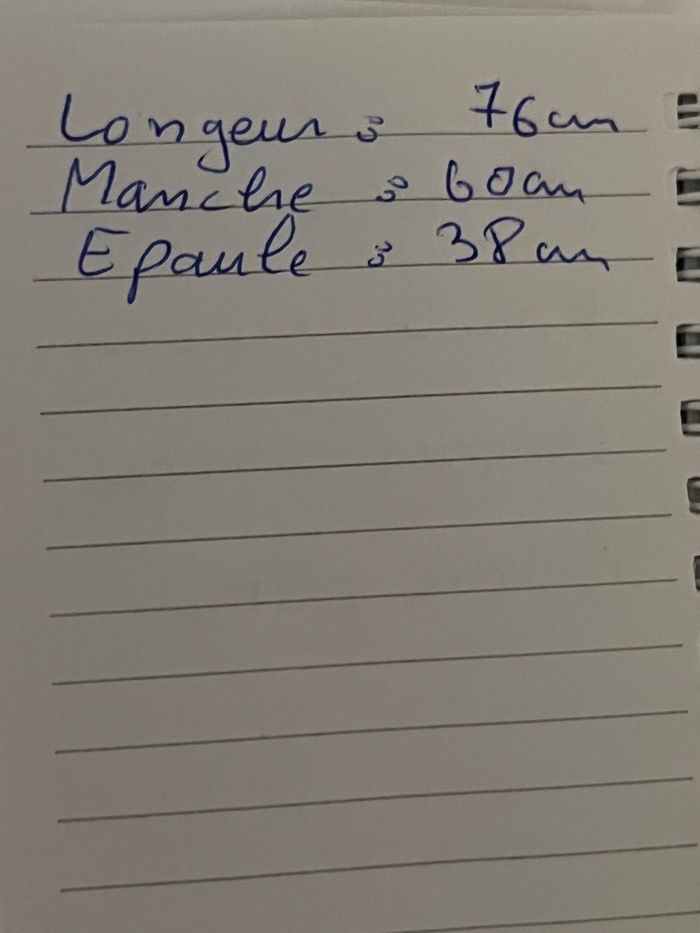 Longeur : 76cm
Manche : 60cm
Epaule : 38cm